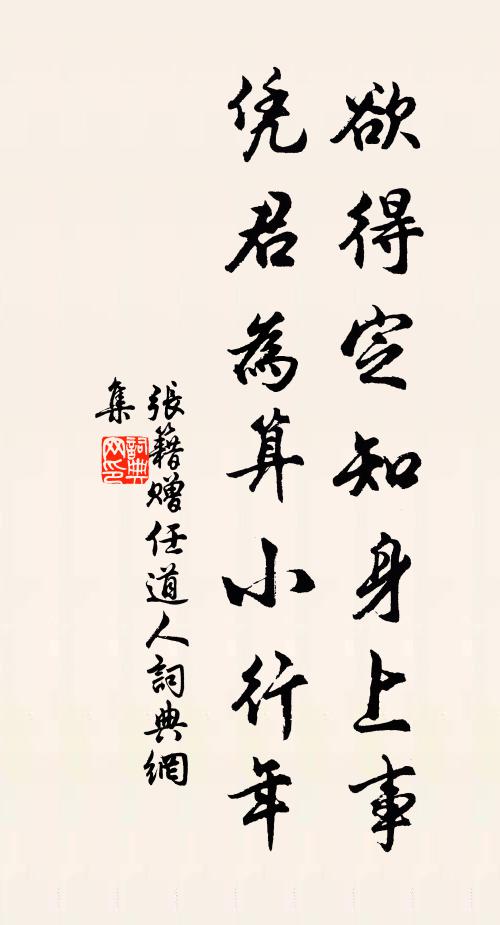 欲得定知身上事
凭君為算小行年
張籍贈任道人詞典網
集
詞典网印